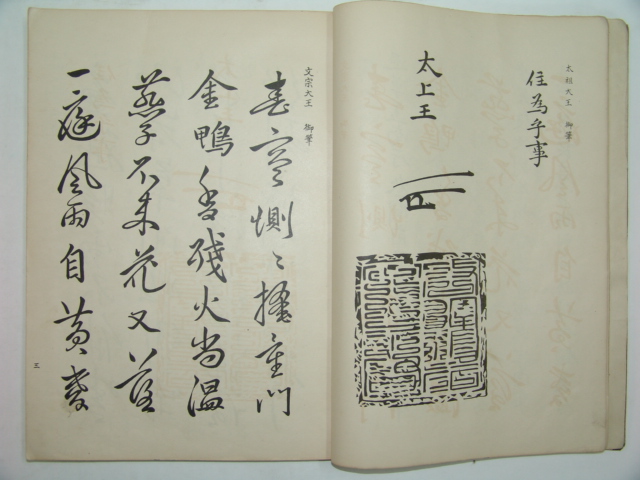 太祖大王 御筆
住為乎事
太上王
文宗大王 御筆
春寒惻〻掩重門
金鴨香殘火尚溫
燕子不來花又落
一庭風雨自黃昏
三